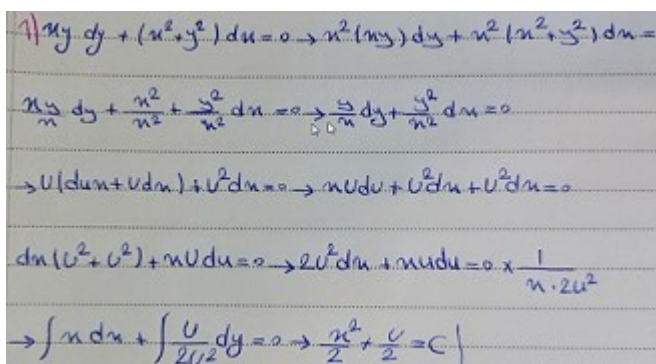 1) xy dy + (x²+y²) dx = 0 → x²(xy) dy + x²(x²+y²) dx =
xy/x dy + x²/x² + y²/x² dx = 0 → y/x dy + y²/x² dx = 0
→ U(dux + Udx) + U²dx = 0 → xUdU + U²dx + U²dx = 0
dx(U² + U²) + xUdu = 0 → 2U²dx + xudu = 0 × 1/(x·2u²)
→ ∫x dx + ∫U/2U² dy = 0 → x²/2 + U/2 = C |